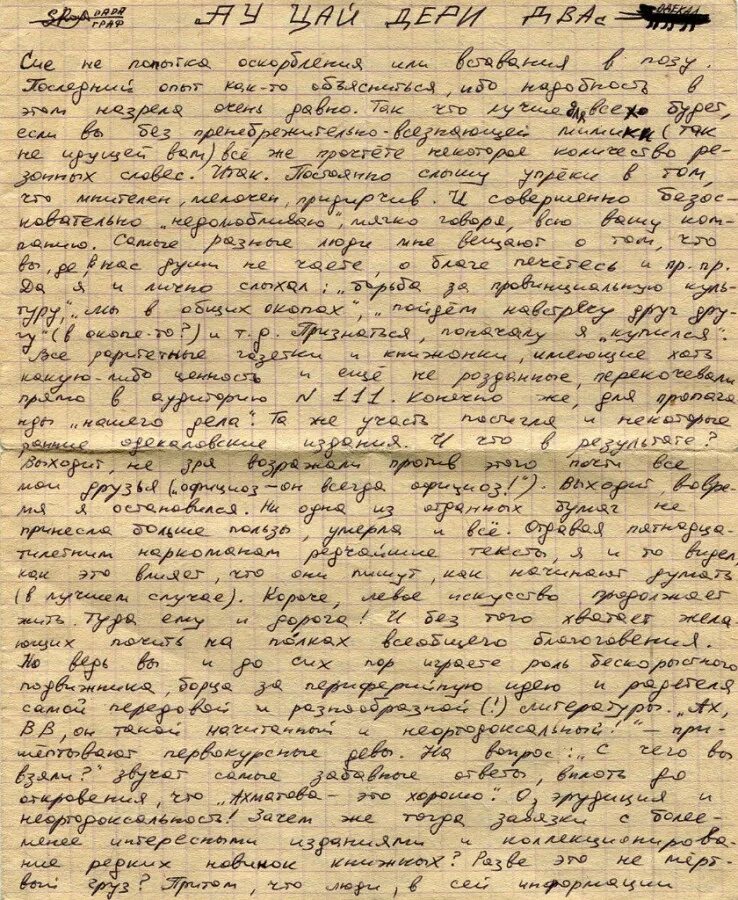 ПАРА
ГРАФ
АУ ЦАЙ ДЕРИ ДВАс
ОДЕКАЛ
Сие не попытка оскорбления или вставания в позу.
Последний опыт как-то объясниться, ибо надобность в
этом назрела очень давно. Так что лучше для всего будет,
если вы без пренебрежительно-всезнающей мимики (так
не идущей вам) всё же прочтёте некоторое количество ре-
зонных словес. Итак. Постоянно слышу упрёки в том,
что мнителен, мелочен, придирчив. И совершенно безос-
новательно „недолюбливаю", мягко говоря, всю вашу ком-
панию. Самые разные люди мне вещают о том, что
вы, де, в нас души не чаете, о благе печётесь и пр. пр.
Да я и лично слыхал: „борьба за провинциальную куль-
туру", „мы в общих окопах", „пойдём навстречу друг дру-
гу" (в окопе-то?) и т.д. Признаться, поначалу я „купился".
Все раритетные газетки и книжонки, имеющие хоть
какую-либо ценность и ещё не розданные, перекочевали
прямо в аудиторию N 111. Конечно же, для пропага-
нды „нашего дела". Та же участь постигла и некоторые
ранние одекаловские издания. И что в результате?
Выходит, не зря возражали против этого почти все
мои друзья („официоз-он всегда официоз!"). Выходит, вовре-
мя я остановился. Ни одна из отданных бумаг не
принесла больше пользы, умерла и всё. Отдавая пятнадца-
тилетним наркоманам редчайшие тексты, я и то видел,
как это влияет, что они пишут, как начинают думать
(в лучшем случае). Короче, левое искусство продолжает
жить. Туда ему и дорога! И без того хватает жела-
ющих почить на полках всеобщего благоговения.
Но ведь вы и до сих пор играете роль бескорыстного
подвижника, борца за периферийную идею и радетеля
самой передовой и разнообразной (!) литературы. „Ах,
ВВ, он такой начитанный и неортодоксальный!" – при-
шёптывают первокурсные девы. На вопрос: „С чего вы
взяли?" звучат самые забавные ответы, вплоть до
откровения, что „Ахматова – это хорошо". О, эрудиция и
неортодоксальность! Зачем же тогда завязки с более-
менее интересными изданиями и коллекционирова-
ние редких новинок книжных? Разве это не мёрт-
вый груз? Притом, что люди, в сей информации